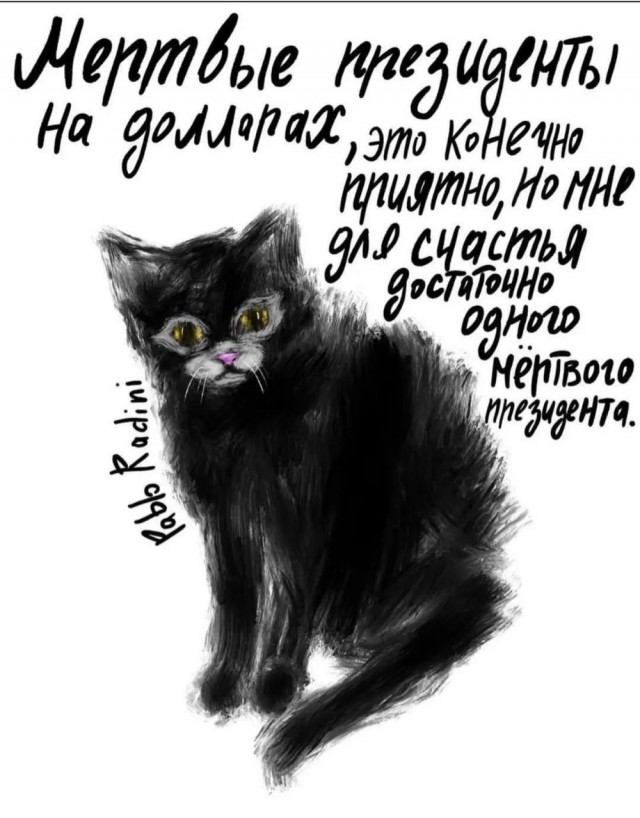 Мертвые президенты
на долларах, это конечно
приятно, но мне
для счастья
достаточно
одного
мёртвого
президента.
Pabla Radini